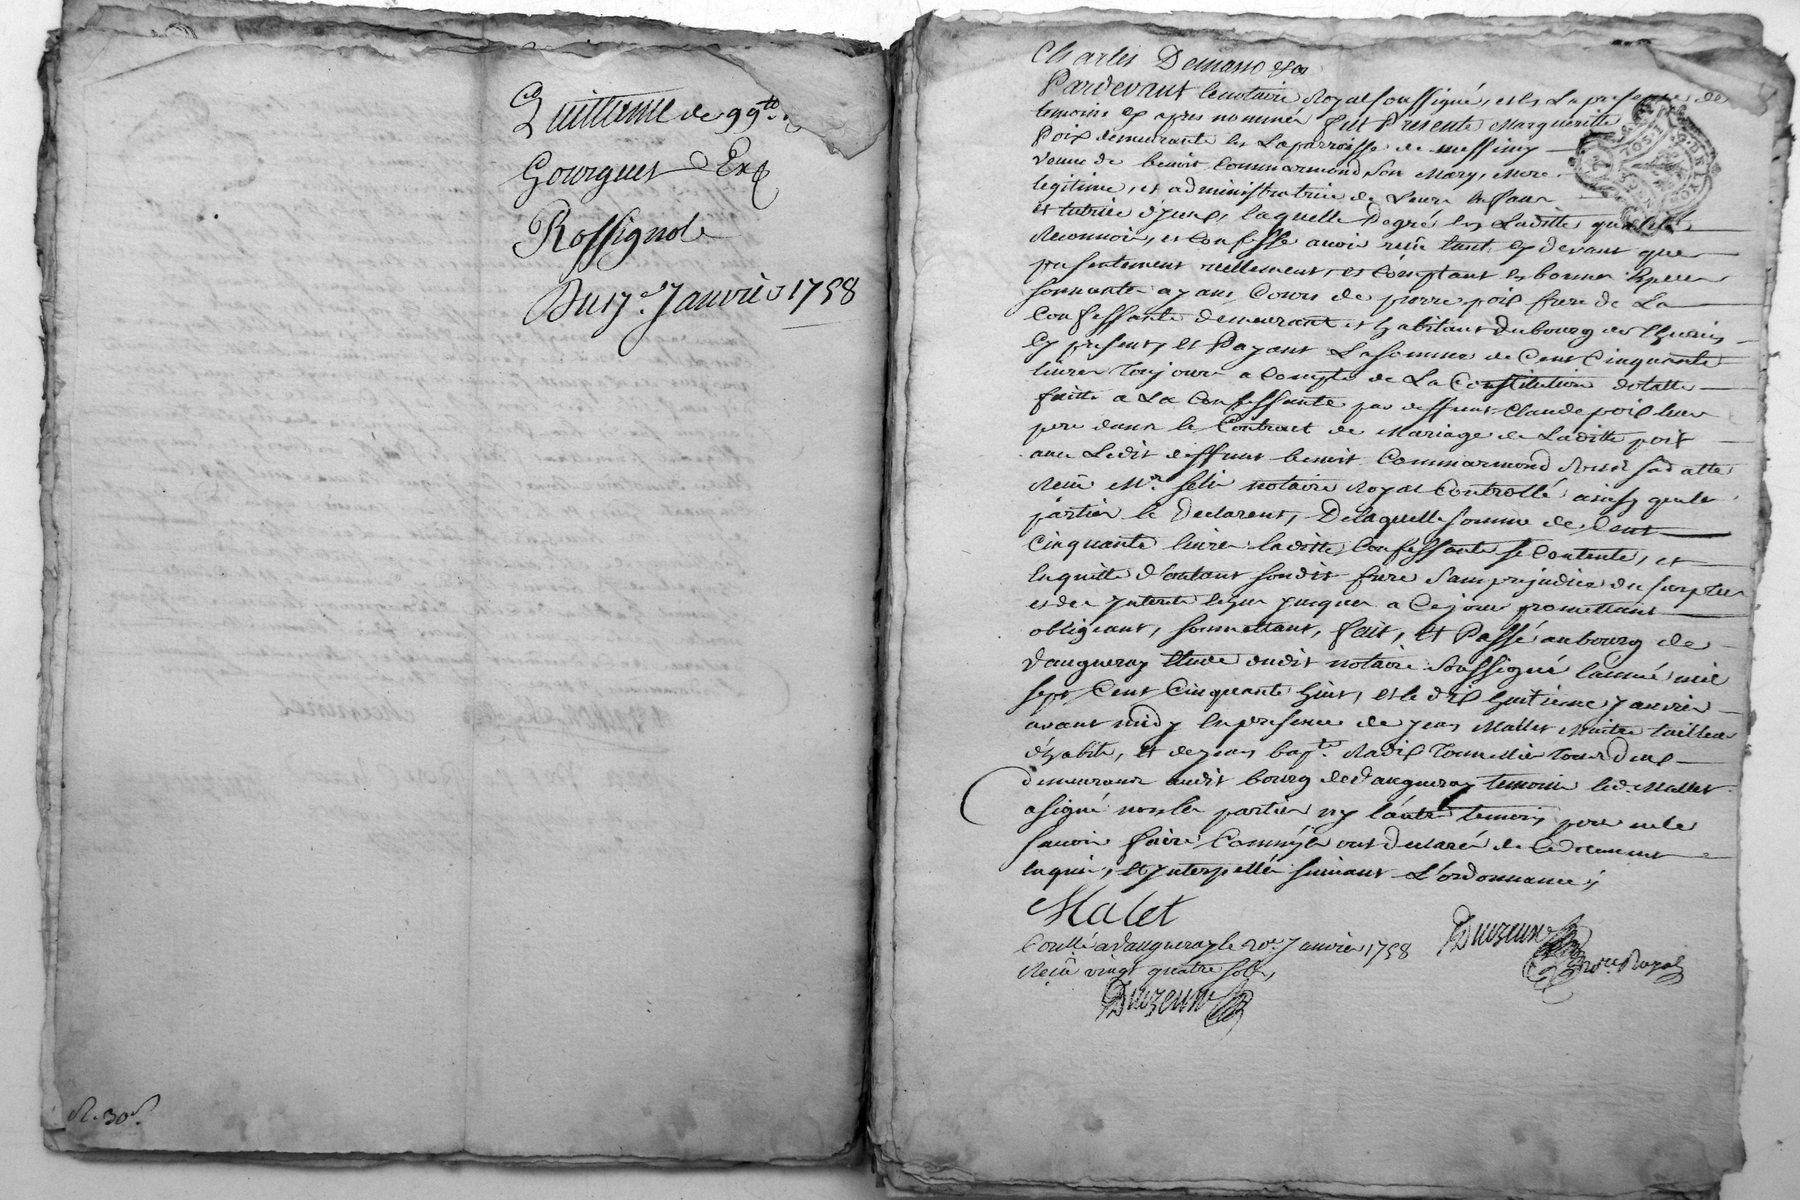 Quittance de 99ᵗᵗ
Gourguet &
Rossignol
Du 17e. Janvier 1758
R. 30s.
Charles
Pardevant le notaire Royal soussigné, et en La presence des
temoins cy apres nommés fut Presente Marguerite
Poix demeurante en La parroisse de messimy
veuve de benoit Commarmond son Mary, Mere
legitime, et administratrice de Leurs Enfans
et tutrice d'yceux, laquelle Degré en Laditte qualité
Reconnoit, et Confesse avoir reçu tant cy devant que
presentement reellement, et Comptant en bonnes Especes
sonnantes ayans Cours de pierre poix frere de La
Confessante demeurant et habitant du bourg de Thurins
Cy present, et Payant La somme de Cent Cinquante
livres Toujours a Compte de La Constitution dotalle
faitte a La Confessante par deffunt Claude poix leur
pere dans le Contract de Mariage de Laditte poix
avec Ledit deffunt benoit Commarmond sous sa datte
Reçu Me. notaire Royal Controllé ainsy que les
parties le Declarent, De laquelle somme de Cent
Cinquante livres laditte Confessante se Contente, et
En quitte d'autant sondit frere sans prejudice du surplus
et des Interets jusques a Ce jour promettant
obligeant, soumettant, fait, et Passé au bourg de
Vaugneray Etude dudit notaire soussigné l'année mil
sept Cent Cinquante huit, et le dix huitieme Janvier
avant midy En presence de jean Mallet Maitre tailleur
d'habits, et de jean bapte. Radix Tous deux
demeurans audit bourg de Vaugneray temoins led. Mallet
a signé non les parties ny l'autre temoin pour ne le
savoir faire Comm'ils ont Declaré de Ce
Enquis, et Interpellés suivant L'ordonnance;
Malet
Conllé a Vaugneray le 20e. Janvier 1758
Reçu vingt quatre sols,
nore Royal